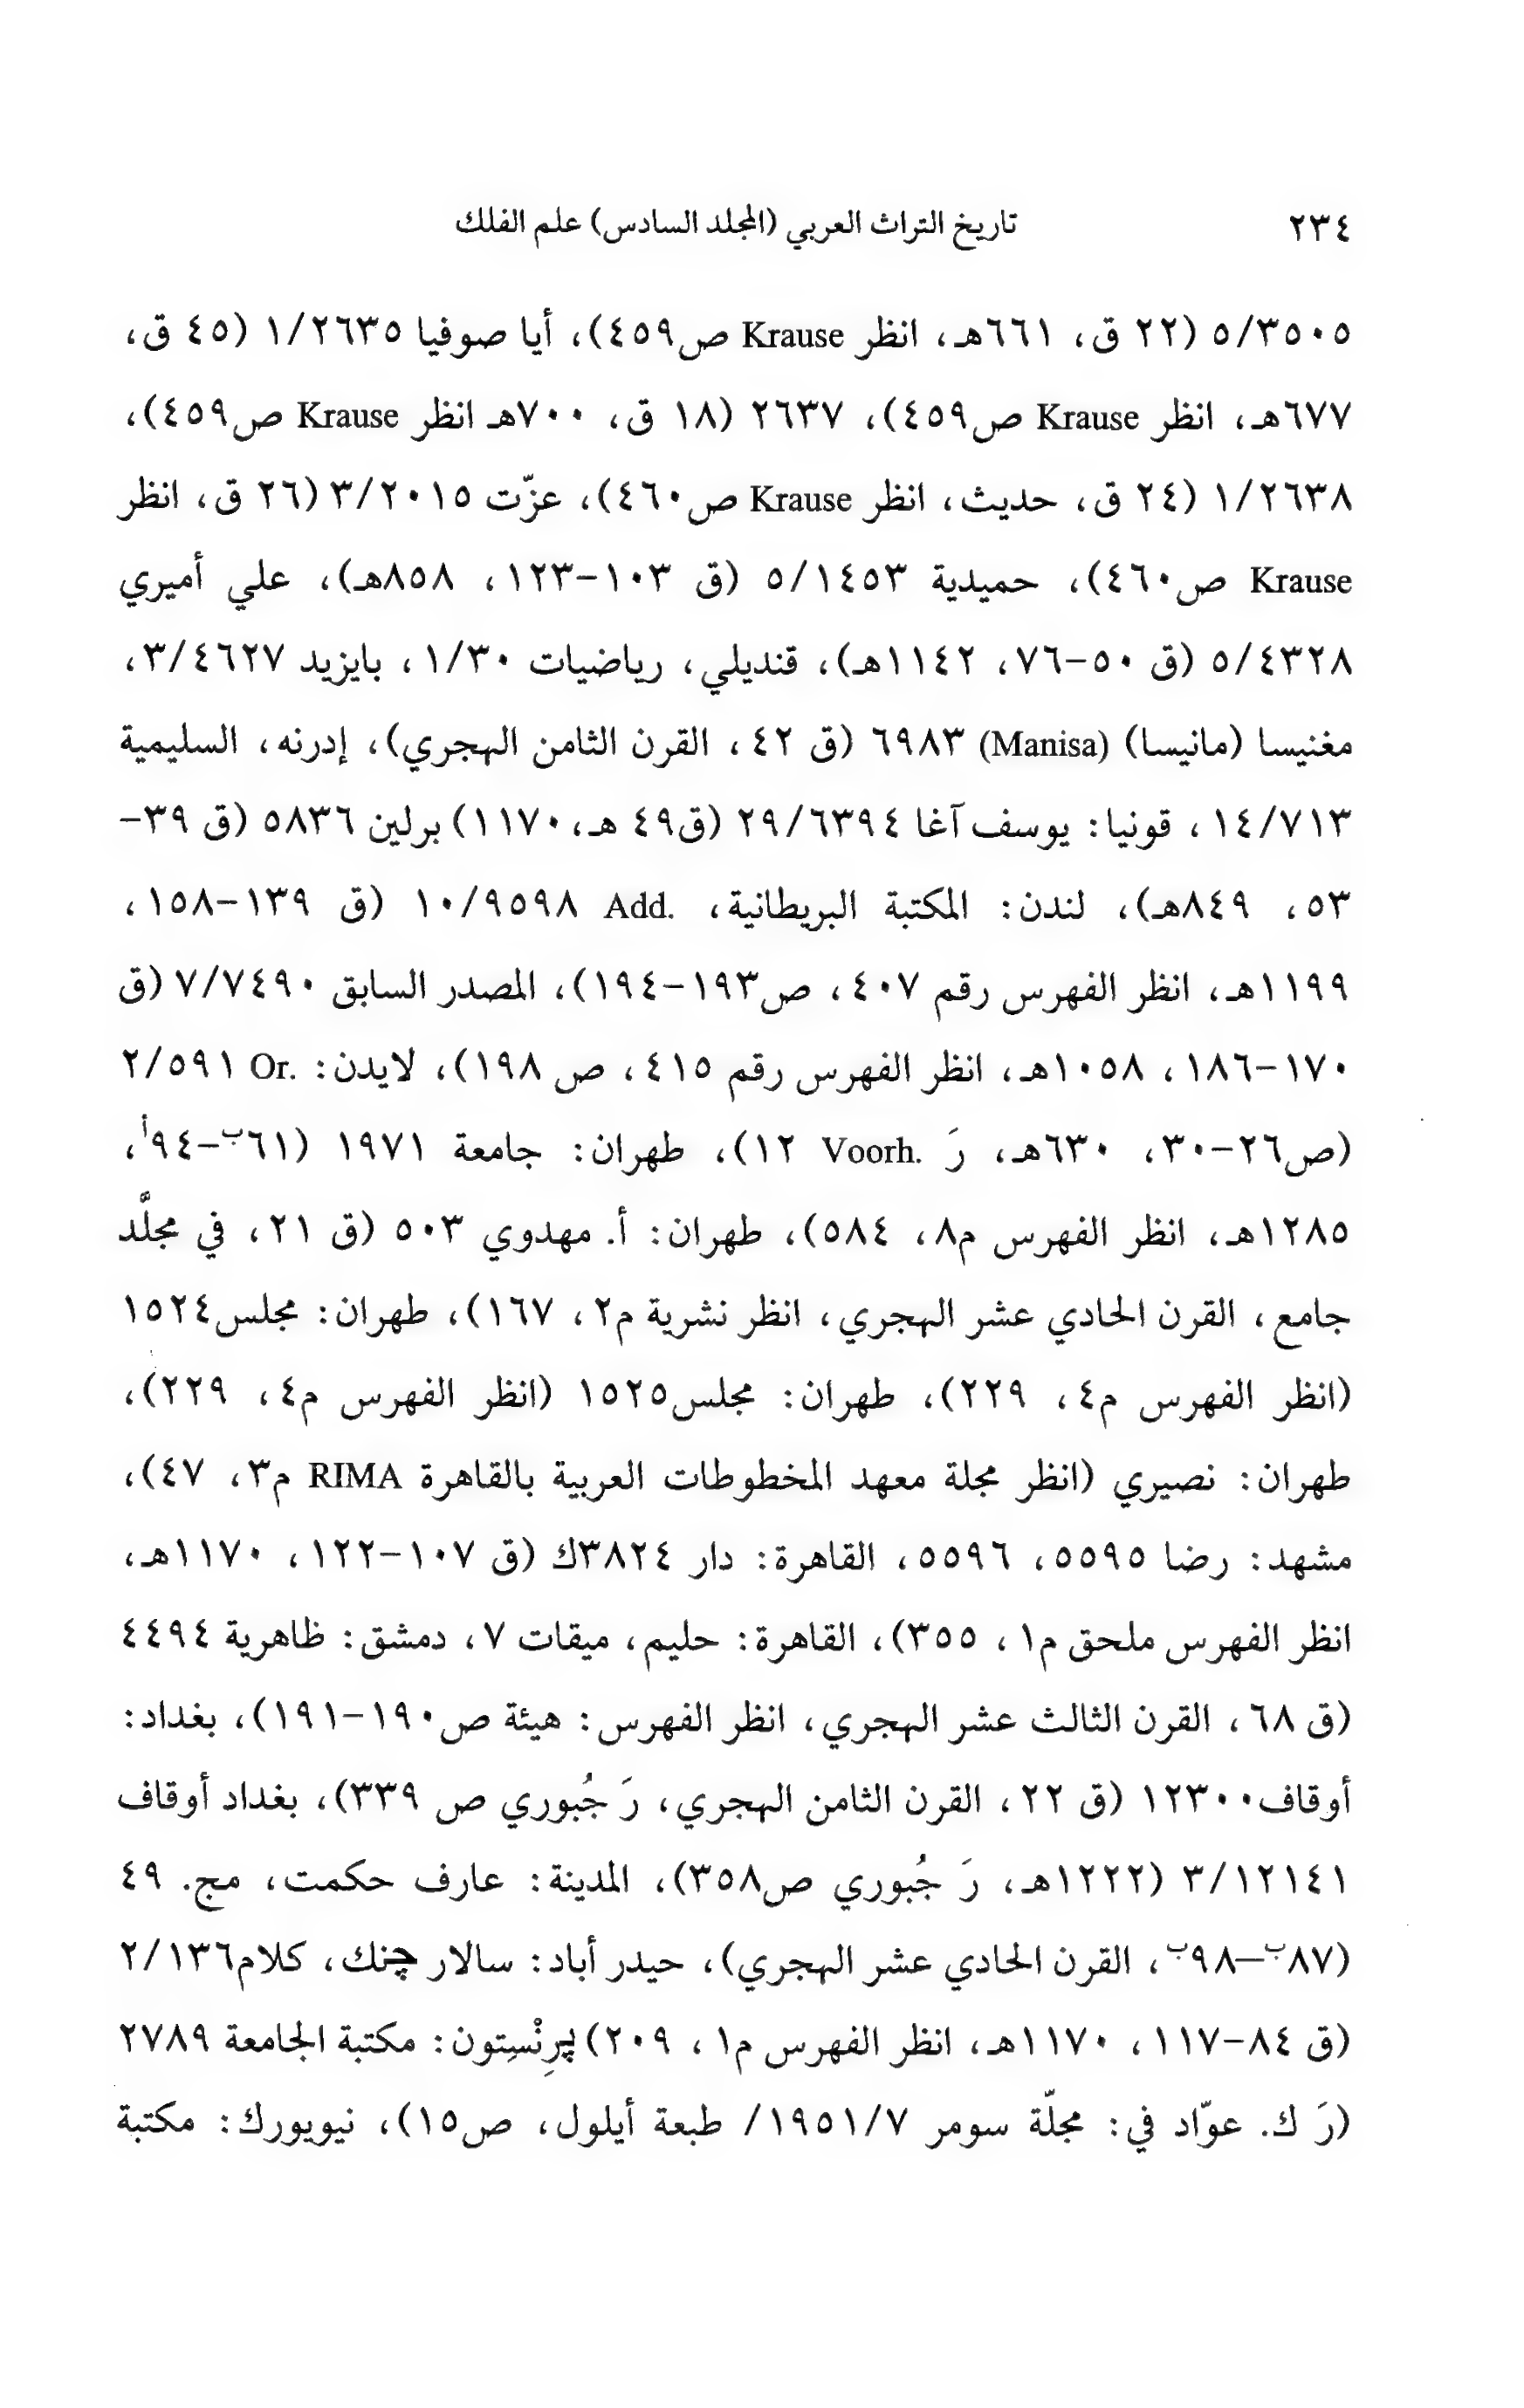 ٢٣٤ تاريخ التراث العربي (المجلد السادس) علم الفلك
٥/٣٥٠٥ (٢٢ ق، ٦٦١هـ، انظر Krause ص٤٥٩)، أيا صوفيا ١/٢٦٣٥ (٤٥ ق،
٦٧٧هـ، انظر Krause ص٤٥٩)، ٢٦٣٧ (١٨ ق، ٧٠٠هـ انظر Krause ص٤٥٩)،
١/٢٦٣٨ (٢٤ ق، حديث، انظر Krause ص٤٦٠)، عزّت ٣/٢٠١٥ (٢٦ ق، انظر
Krause ص٤٦٠)، حميدية ٥/١٤٥٣ (ق ١٠٣-١٢٣، ٨٥٨هـ)، علي أميري
٥/٤٣٢٨ (ق ٥٠-٧٦، ١١٤٢هـ)، قنديلي، رياضيات ١/٣٠، بايزيد ٣/٤٦٢٧،
مغنيسا (مانيسا) (Manisa) ٦٩٨٣ (ق ٤٢، القرن الثامن الهجري)، إدرنه، السليمية
١٤/٧١٣، قونيا: يوسف آغا ٢٩/٦٣٩٤ (ق٤٩ هـ، ١١٧٠) برلين ٥٨٣٦ (ق ٣٩-
٥٣، ٨٤٩هـ)، لندن: المكتبة البريطانية، Add. ١٠/٩٥٩٨ (ق ١٣٩-١٥٨،
١١٩٩هـ، انظر الفهرس رقم ٤٠٧، ص١٩٣-١٩٤)، المصدر السابق ٧/٧٤٩٠ (ق
١٧٠-١٨٦، ١٠٥٨هـ، انظر الفهرس رقم ٤١٥، ص ١٩٨)، لايدن: Or. ٢/٥٩١
(ص٢٦-٣٠، ٦٣٠هـ، رَ Voorh. ١٢)، طهران: جامعة ١٩٧١ (٦١ب-٩٤أ،
١٢٨٥هـ، انظر الفهرس م٨، ٥٨٤)، طهران: أ. مهدوي ٥٠٣ (ق ٢١، في مجلَّد
جامع، القرن الحادي عشر الهجري، انظر نشرية م٢، ١٦٧)، طهران: مجلس١٥٢٤
(انظر الفهرس م٤، ٢٢٩)، طهران: مجلس١٥٢٥ (انظر الفهرس م٤، ٢٢٩)،
طهران: نصيري (انظر مجلة معهد المخطوطات العربية بالقاهرة RIMA م٣، ٤٧)،
مشهد: رضا ٥٥٩٥، ٥٥٩٦، القاهرة: دار ٣٨٢٤ك (ق ١٠٧-١٢٢، ١١٧٠هـ،
انظر الفهرس ملحق م١، ٣٥٥)، القاهرة: حليم، ميقات ٧، دمشق: ظاهرية ٤٤٩٤
(ق ٦٨، القرن الثالث عشر الهجري، انظر الفهرس: هيئة ص١٩٠-١٩١)، بغداد:
أوقاف١٢٣٠٠ (ق ٢٢، القرن الثامن الهجري، رَ جُبوري ص ٣٣٩)، بغداد أوقاف
٣/١٢١٤١ (١٢٢٢هـ، رَ جُبوري ص٣٥٨)، المدينة: عارف حكمت، مج. ٤٩
(٨٧ب—٩٨ب، القرن الحادي عشر الهجري)، حيدر أباد: سالار چنك، كلام٢/١٣٦
(ق ٨٤-١١٧، ١١٧٠هـ، انظر الفهرس م١، ٢٠٩) پرِنْسِتون: مكتبة الجامعة ٢٧٨٩
(رَ ك. عوّاد في: مجلّة سومر ١٩٥١/٧/ طبعة أيلول، ص١٥)، نيويورك: مكتبة